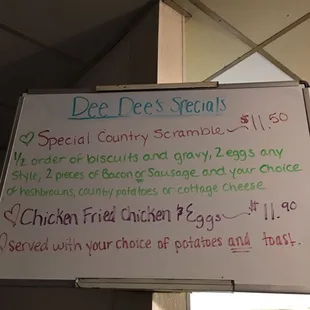 Dee Dee's Specials
Special Country Scramble ~ $11.50
1/2 order of biscuits and gravy, 2 eggs any
style, 2 pieces of Bacon or Sausage and your choice
of hashbrowns, country potatoes or cottage cheese
Chicken Fried Chicken & Eggs ~ $11.90
served with your choice of potatoes and toast.